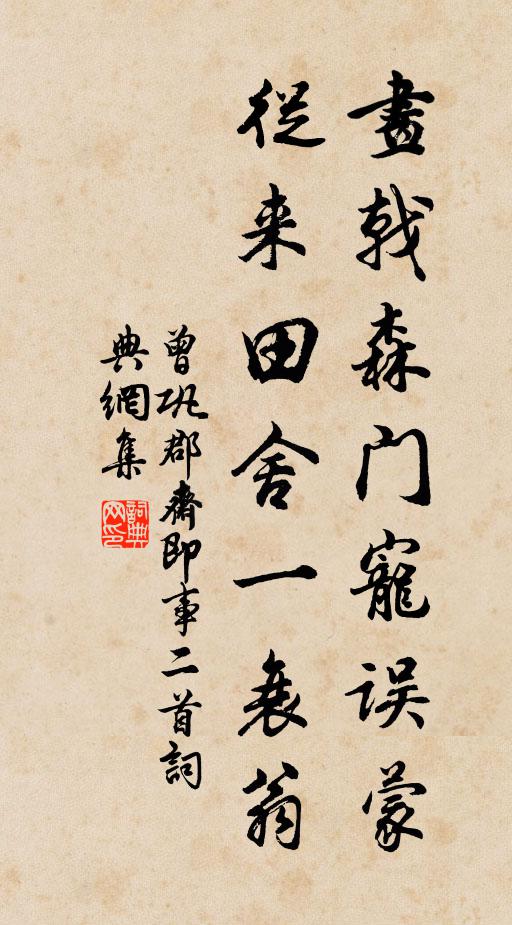 畫戟森門寵误蒙
從来田舍一衰翁
曾巩郡齋即事二首詞
典網集
詞典网印